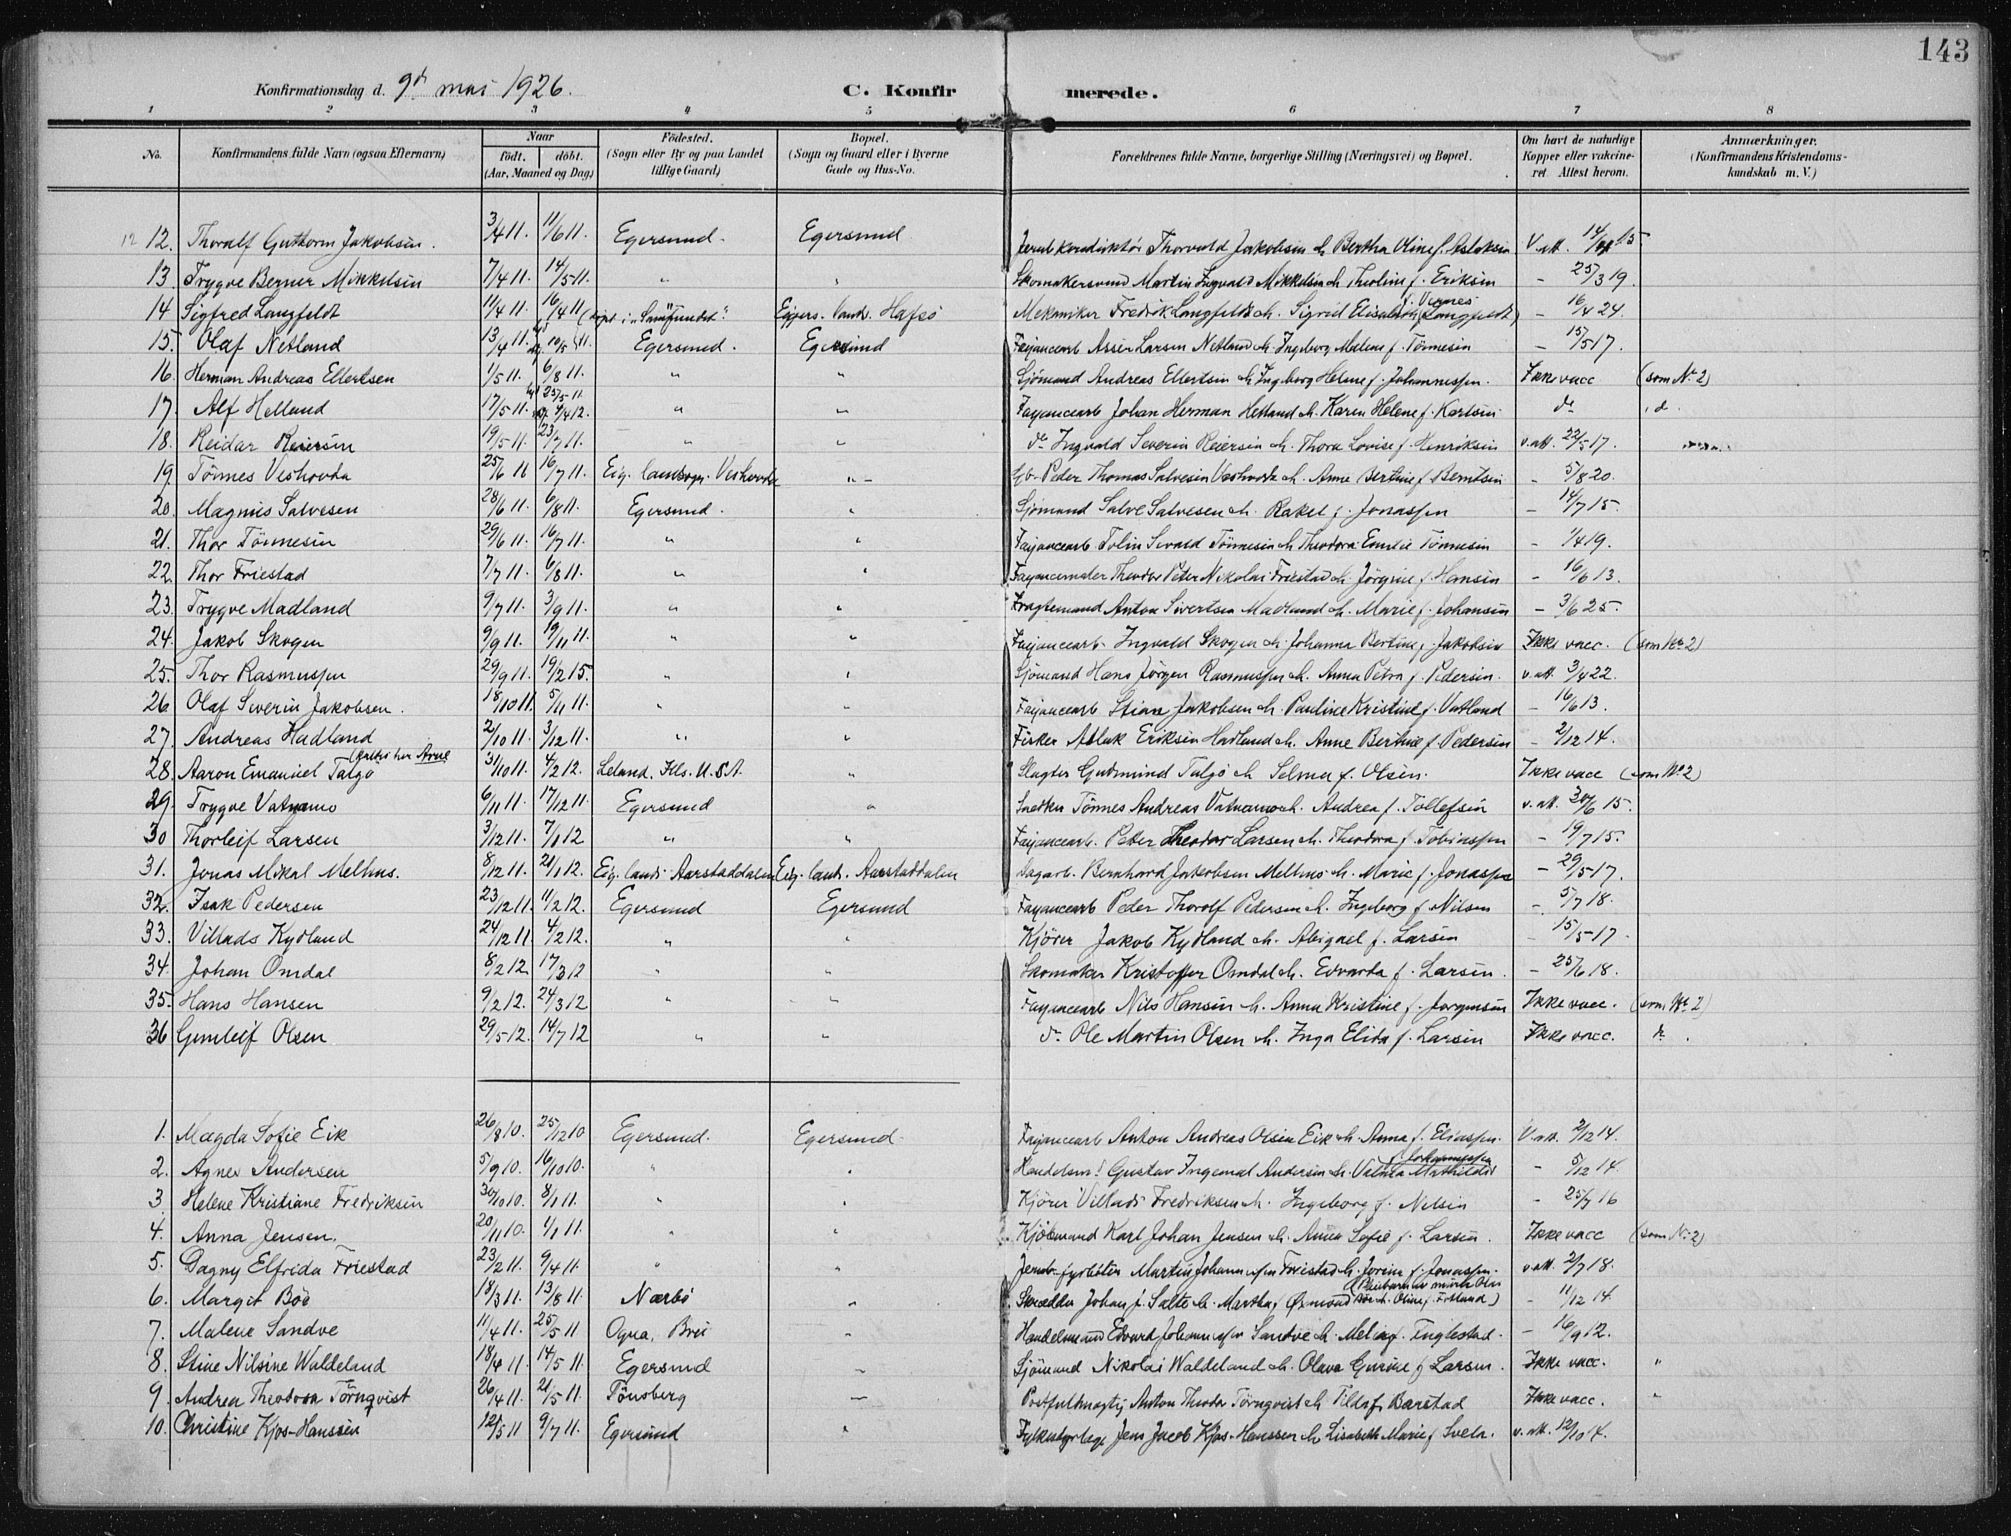 143
Konfirmationsdag d. 9d mai 1926. C. Konfirmerede.
1 2 3 4 5 6 7 8
No. Konfirmandens fulde Navn (ogsaa Efternavn) Naar født. døbt. (Aar, Maaned og Dag) Fødested. (Sogn eller By og paa Landet tillige Gaard) Bopæl. (Sogn og Gaard eller i Byerne Gade og Hus-No. Forældrenes fulde Navne, borgerlige Stilling (Næringsvei) og Bopæl. Om havt de naturlige Kopper eller vakcineret. Attest herom. Anmærkninger. (Konfirmandens Kristendomskundskab m. V.)
12 12. Thoralf Guttorm Jakobsen. 3/4 11. 11/6 11. Egersund. Egersund Jernb.konduktør Thorvald Jakobsen & Bertha Oline f. Aslaksen V. att. 14/ 15
13. Trygve Berner Mikkelsen 7/4 11. 14/5 11. " " Skomakersvend Martin Ingvald Mikkelsen & Theoline f. Eriksen - 25/3 19.
14 Sigfred Langfeldt 11/4 11. 16/4 11 (døpt i "Samfundet" Eggers. lands. Hafsø Mekaniker Fredrik Langfeldt & Sigrid Elisabeth f. Vernes (Langfeldt) - 16/4 24.
15. Olaf Netland 13/4 11. 10/5 11. Egersund. Egersund Fajancearb Asser Larsen Netland & Ingeborg Malene f. Tønnesen - 15/5 17.
16. Herman Andreas Ellertsen 1/5 11. 6/8 11. " " Sjømand Andreas Ellertsen & Ingeborg Helene f. Johannessen. Ikke vacc (som No 2)
17. Alf Helland 17/5 11. 25/5 11 4/4 12. " " Fayancearb Johan Herman Helland & Karen Helene f. Karlsen do d.
18. Reidar Reiersen 19/5 11. 23/7 11. " " do Ingvald Severin Reiersen & Thora Lovise f. Henriksen v. att. 22/5 17.
19. Tönnes Veshovda 25/6 11 16/7 11. Eig. landsogn. Veshovda " Gb. Peder Thomas Salvesen Veshovda & Anne Bertine f. Berntsen - 5/8 20.
20. Magnus Salvesen 28/6 11. 6/8 11. Egersund. " Sjømand Salve Salvesen & Rakel f. Jonassen - 14/7 15.
21. Thor Tönnesen 29/6 11. 16/7 11. " " Fajancearb Tolin Sevald Tönnesen & Theodora Emilie Tönnesen - 1/4 19.
22. Thor Friestad 7/7 11. 6/8 11. " " Fayancemaler Theodor Peter Nikolai Friestad & Jörgine f. Hansen - 16/6 13.
23. Trygve Madland 9/7 11. 3/9 11. " " Fragtemand Anton Sivertsen Madland & Marie f. Johansen - 3/6 25.
24. Jakob Skogen 9/9 11. 19/11 11. " " Fajancearb. Ingvald Skogen & Johanna Bertine f. Jakobsen Ikke vacc. (som No 2)
25. Thor Rasmussen 29/9 11. 19/2 15. " " Sjømand Hans Jörgen Rasmussen & Anna Petra f. Pedersen. v. att. 3/4 22.
26 Olaf Severin Jakobsen. 18/10 11. 5/11 11. " " Fajancearb Stian Jakobsen & Pauline Kristine f. Vatland - 16/6 13.
27. Andreas Hadland 2/10 11. 3/12 11. " " Fisker Aslak Eriksen Hadland & Anne Bertine f. Pedersen - 2/12 14.
28. Aaron Emanuel Talgø (kaldes her Arne 31/10 11. 4/2 12. Leland. Ills. U.S.A. " Slagter Gudmund Talgø & Selma f. Olsen. Ikke vacc (som No 2)
29. Trygve Vatnamo 6/11 11. 17/12 11. Egersund " Snedker Tönnes Andreas Vatnamo & Andrea f. Tollefsen v. att. 30/6 15.
30 Thorleif Larsen 3/12 11. 7/1 12 " " Fajancearb. Peter Theodor Larsen & Theodora f. Tobiassen - 19/7 15.
31. Jonas Mikal Melhus. 8/12 11. 21/1 12. Eig. lands. Aarstaddalen Eig. lands. Aarstaddalen Dagarb. Bernhard Jakobsen Melhus & Marie f. Jonassen - 29/5 17.
32. Isak Pedersen 23/12 11. 11/2 12. Egersund Egersund Fayancearb Peder Thorolf Pedersen & Ingeborg f. Nilsen - 5/7 18.
33. Villads Kydland 24/12 11. 4/2 12. " " Kjører Jakob Kydland & Abigael f. Larsen - 15/5 17.
34. Johan Omdal 8/2 12. 17/3 12 " " Skomaker Kristoffer Omdal & Edvarda f. Larsen. - 25/6 18.
35. Hans Hansen 9/2 12. 24/3 12 " " Fayancearb Nils Hansen & Anna Kristine f. Jørgensen Ikke vacc. (som No 2)
36 Gunleif Olsen 29/5 12. 14/7 12 " " do Ole Martin Olsen & Inga Elida f. Larsen Ikke vacc. do.
1. Magda Sofie Eik 26/8 10. 25/12 10 Egersund. Egersund. Fajancearb Anton Andreas Olsen Eik & Anna f. Eliassen. V. att. 2/12 14.
2. Agnes Andersen 5/9 10. 16/10 10. " " Handelsm. Gustav Ingemal Andersen & Valma Mathilde f. Johannessen - 5/12 14.
3 Helene Kristiane Fredriksen 30/10 10. 8/1 11. " " Kjører Villads Fredriksen & Ingeborg f. Nilsen - 25/7 16
4. Anna Jensen. 20/11 10. 1/1 11. " " Kjøbmand Karl Johan Jensen & Anna Sofie f. Larsen. Ikke vacc (som No 2)
5. Dagny Elfrida Friestad 23/2 11. 9/4 11. " " Jernb. fyrbøter Martin Johannessen Friestad & Jorine f. Jonassen. v att. 2/7 18.
6. Margit Böe 18/3 11. 13/8 11. Nærbø " Skrædder Johan J. Salte & Martha f. Ørmond - 11/12 14.
7. Malene Sandve 11/4 11. 25/5 11 Ogna, Brui " Handelsmand Edvard Johannessen Sandve & Melina f. Fuglestad. - 16/9 12.
8. Stine Nilsine Waldeland 18/4 11. 14/5 11. Egersund " Sjømand Nikolai Waldeland & Olava Gurine f. Larsen. Ikke vacc. "
9. Andrea Theodora Törnqvist 26/4 11. 21/5 11. Tønsberg " Postfuldmægtig Anton Theodor Törnqvist & Tilda f. Barstad Ikke vacc. "
10. Christine Kjos-Hanssen 12/5 11 9/7 11. Egersund " Jens Jacob Kjos-Hanssen & Lisabeth Marie f. Svela. v. att. 12/10 14.